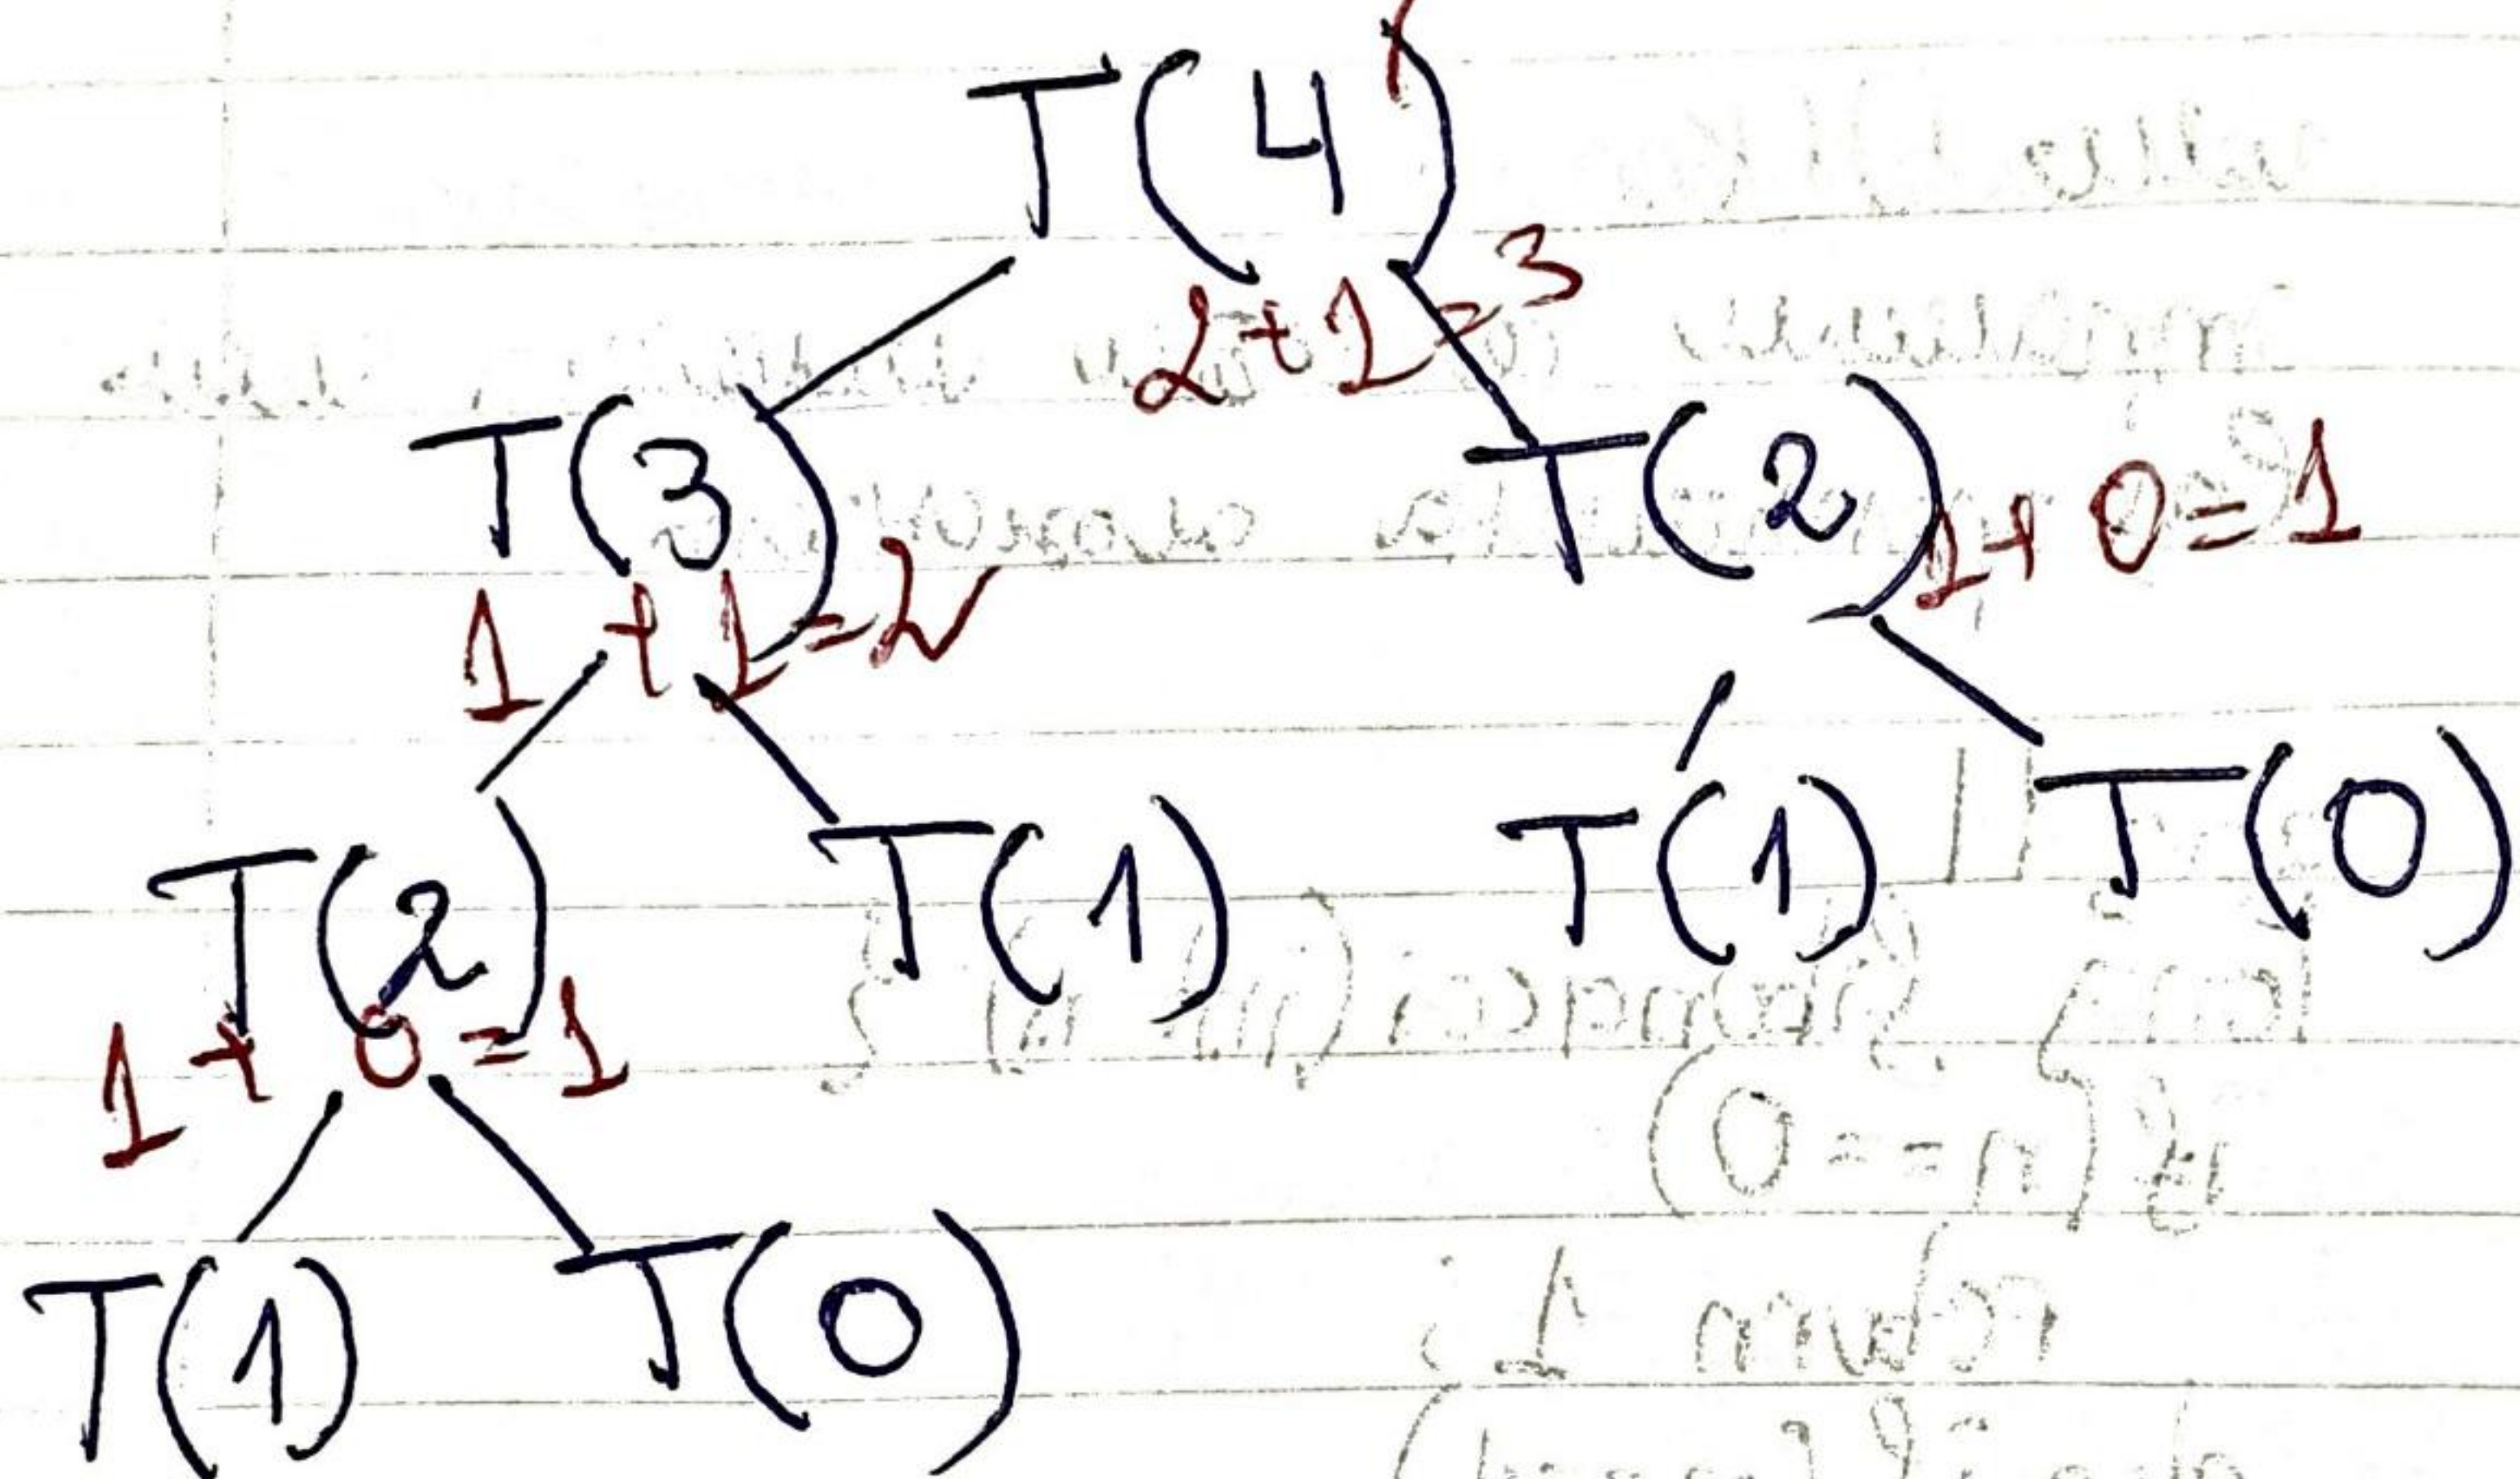 T(4)
2+1=3
T(3) T(2) 1+0=1
1+1=2
T(2) T(1) T(1) T(0)
1+0=1
T(1) T(0)